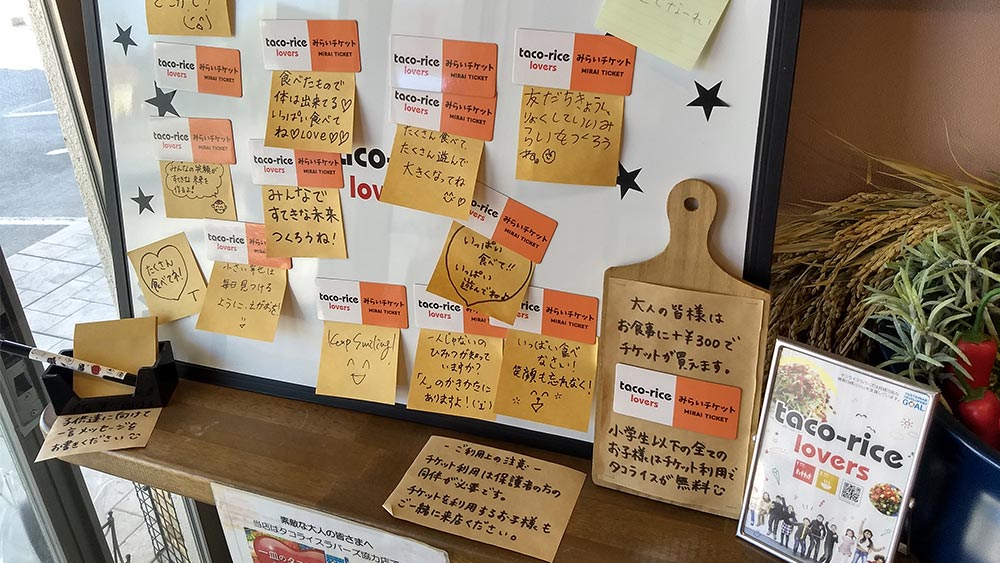 taco-rice
lovers
みらいチケット
MIRAI TICKET
taco-rice
lovers
みらいチケット
MIRAI TICKET
食べたもので
体は出来てる♡
いっぱい食べて
ね♡LOVE♡♡
taco-rice
lovers
みらいチケット
MIRAI TICKET
taco-rice
lovers
みらいチケット
MIRAI TICKET
たくさん食べて、
たくさん遊んで
大きくなってね
taco-rice
lovers
みらいチケット
MIRAI TICKET
友だちきょうし
りょくしていいみ
らいをつくろう
ね。
taco-rice
lovers
みらいチケット
MIRAI TICKET
みんなの笑顔が
すてきな未来
を作るよ!
taco-rice
lovers
みらいチケット
MIRAI TICKET
みんなで
すてきな未来
つくろうね!
たくさん
食べてネ!
taco-rice
lovers
小さい幸せは
毎日見つける
ように、えがおを!
みらいチケット
MIRAI TICKET
いっぱい
食べて!!
いっぱい
遊んでね
taco-rice
lovers
みらいチケット
MIRAI TICKET
Keep Smiling!
taco-rice
lovers
一人じゃないの
ひみつが知って
いますか?
「人」のかきかたに
ありますよ!
みらいチケット
MIRAI TICKET
いっぱい食べ
なさい!
笑顔も忘れなく!
子供達に向けて
一言メッセージを
お書きください
-ご利用上の注意-
チケット利用は保護者の方の
同伴が必要です。
チケットを利用するお子様も
ご一緒に来店ください。
大人の皆様は
お食事に+¥300で
チケットが買えます。
taco-rice
lovers
みらいチケット
MIRAI TICKET
小学生以下の全ての
お子様はチケット利用で
タコライスが無料
taco-rice
lovers
GOAL
素敵な大人の皆さまへ
当店はタコライスラバーズ協力店で
一皿のタコ